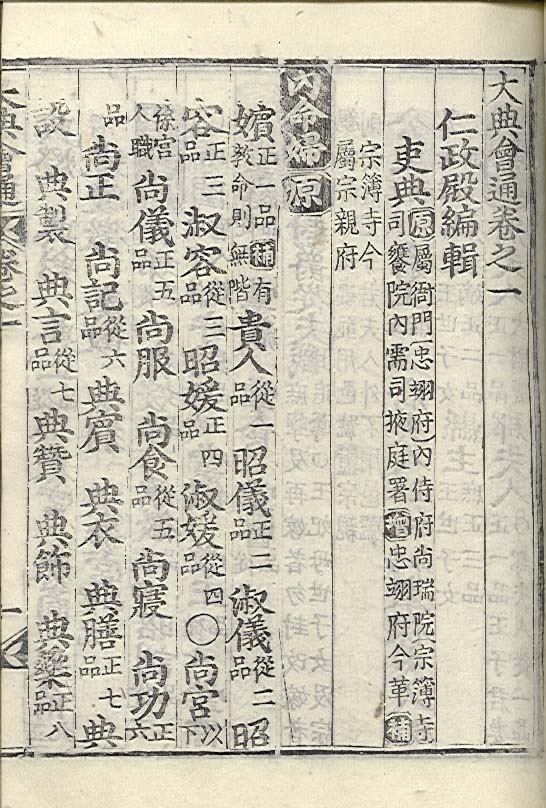 大典會通卷之一
仁政殿編輯
吏典 原屬衙門(忠翊府)內侍府尚瑞院(宗簿寺)司饔院內需司掖庭署增忠翊府今革補
宗簿寺今屬宗親府
內命婦 原
嬪正一品補有教命則無階 貴人從一品 昭儀正二品 淑儀從二品 昭
容正三品 淑容從三品 昭媛正四品 淑媛從四品 ○尚宮以下
係宮人職 尚儀正五品 尚服 尚食從五品 尚寢 尚功正六
品 尚正 尚記從六品 典賓 典衣 典膳正七品 典
設 典製 典言從七品 典贊 典飾 典藥正八品
大典會通 卷之一 一